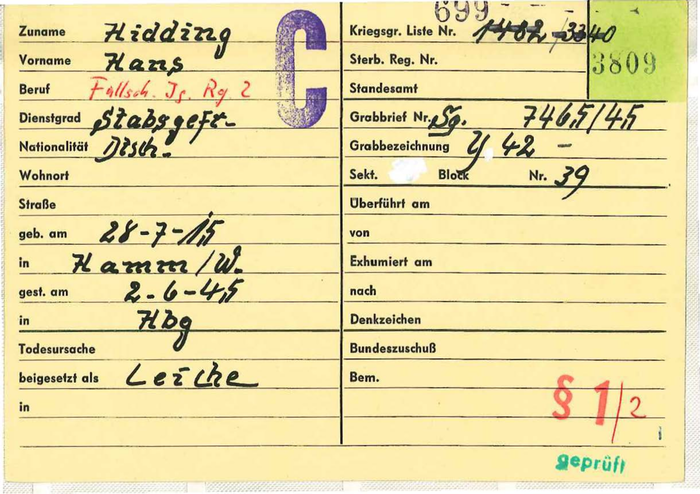 Zuname Hidding
Vorname Hans
Beruf Fallsch. Jg. Rg 2
Dienstgrad Stabsgefr.
Nationalität Dtsch.
Wohnort
Straße
geb. am 28-7-15
in Hamm/W.
gest. am 2-6-45
in Hbg
Todesursache
beigesetzt als Leiche
in
C
699 -
Kriegsgr. Liste Nr. 1482 - /3340
3809
Sterb. Reg. Nr.
Standesamt
Grabbrief Nr. Sg. 7465/45
Grabbezeichnung Y 42 -
Sekt. Block Nr. 39
Überführt am
von
Exhumiert am
nach
Denkzeichen
Bundeszuschuß
Bem.
§ 1/2
geprüft